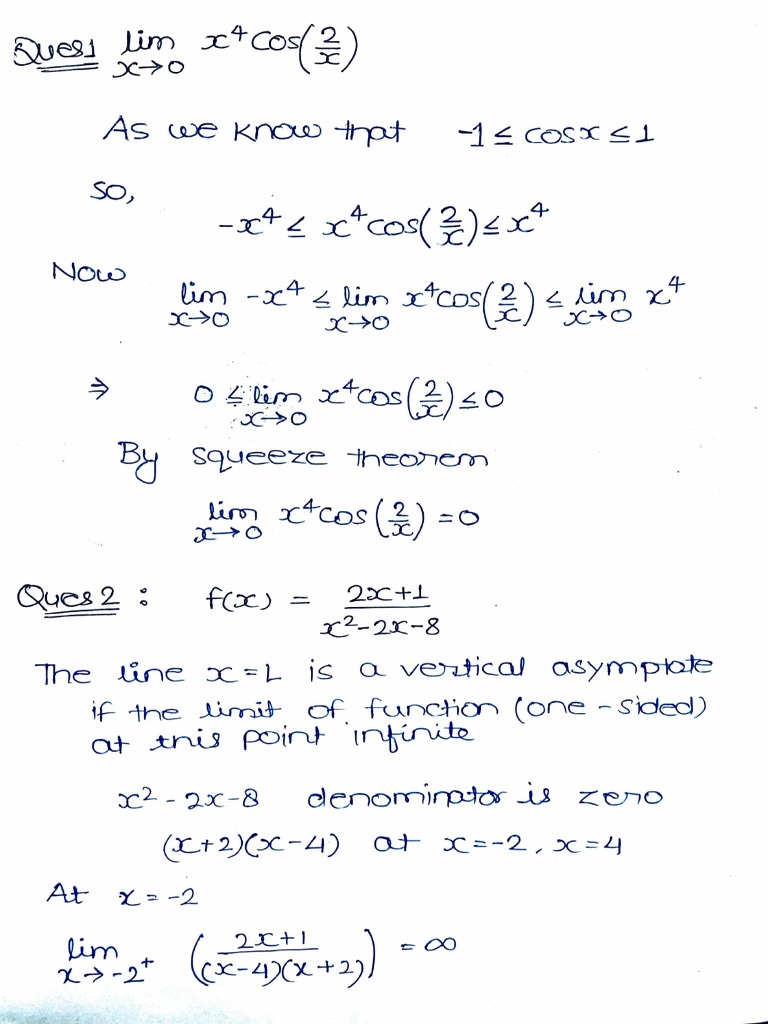 Ques1 lim x→0 x⁴cos(2/x)
As we know that -1 ≤ cosx ≤ 1
so,
-x⁴ ≤ x⁴cos(2/x) ≤ x⁴
Now
lim x→0 -x⁴ ≤ lim x→0 x⁴cos(2/x) ≤ lim x→0 x⁴
⇒ 0 ≤ lim x→0 x⁴cos(2/x) ≤ 0
By squeeze theorem
lim x→0 x⁴cos(2/x) = 0
Ques 2 : f(x) = (2x+1)/(x²-2x-8)
The line x=L is a vertical asymptote
if the limit of function (one-sided)
at this point infinite
x²-2x-8 denominator is zero
(x+2)(x-4) at x=-2, x=4
At x=-2
lim x→-2⁺ ((2x+1)/((x-4)(x+2))) = ∞